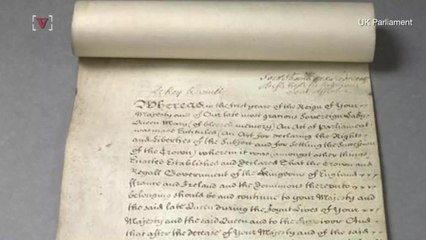 UK Parliament
Le Roy le veult
Whereas in the first yeare of the Reign of Your
Majesty and of Our late most gratious Sovereign Lady
Queen Mary (of blessed memory) An Act of Parliament
was made Intituled (An Act for declaring the Rights
and Liberties of the Subject and for setling the Succession
of the Crown) wherein it was (amongst other things)
Enacted Established and Declared That the Crown and
Regall Government of the Kingdoms of England
ffrance and Ireland and the Dominions thereunto
belonging should be and continue to your Majesty and
the said late Queen during the Joynt Lives of Your
Majesty and the said Queen and to the Survivor And
that after the decease of Your Majesty and of the said